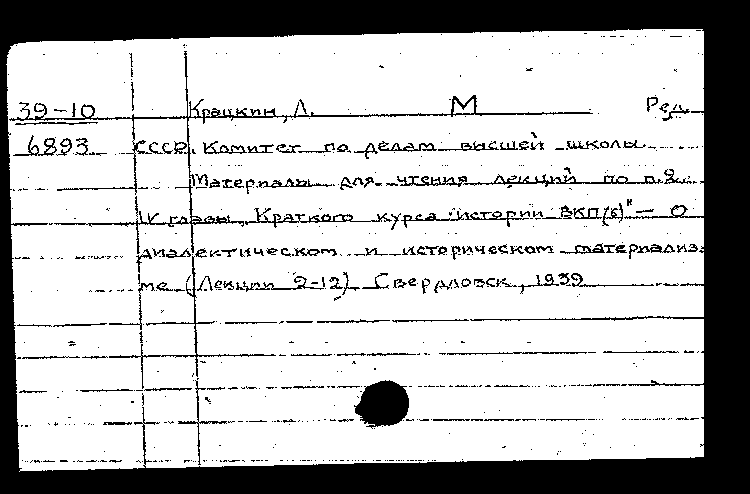 39-10 Крацкин, Л. М Ред.
6893 СССР. Комитет по делам высшей школы.
Материалы для чтения лекций по п.2.
IV главы „Краткого курса истории ВКП(б)" — о
диалектическом и историческом материализ-
ме (Лекции 9-12) Свердловск, 1939